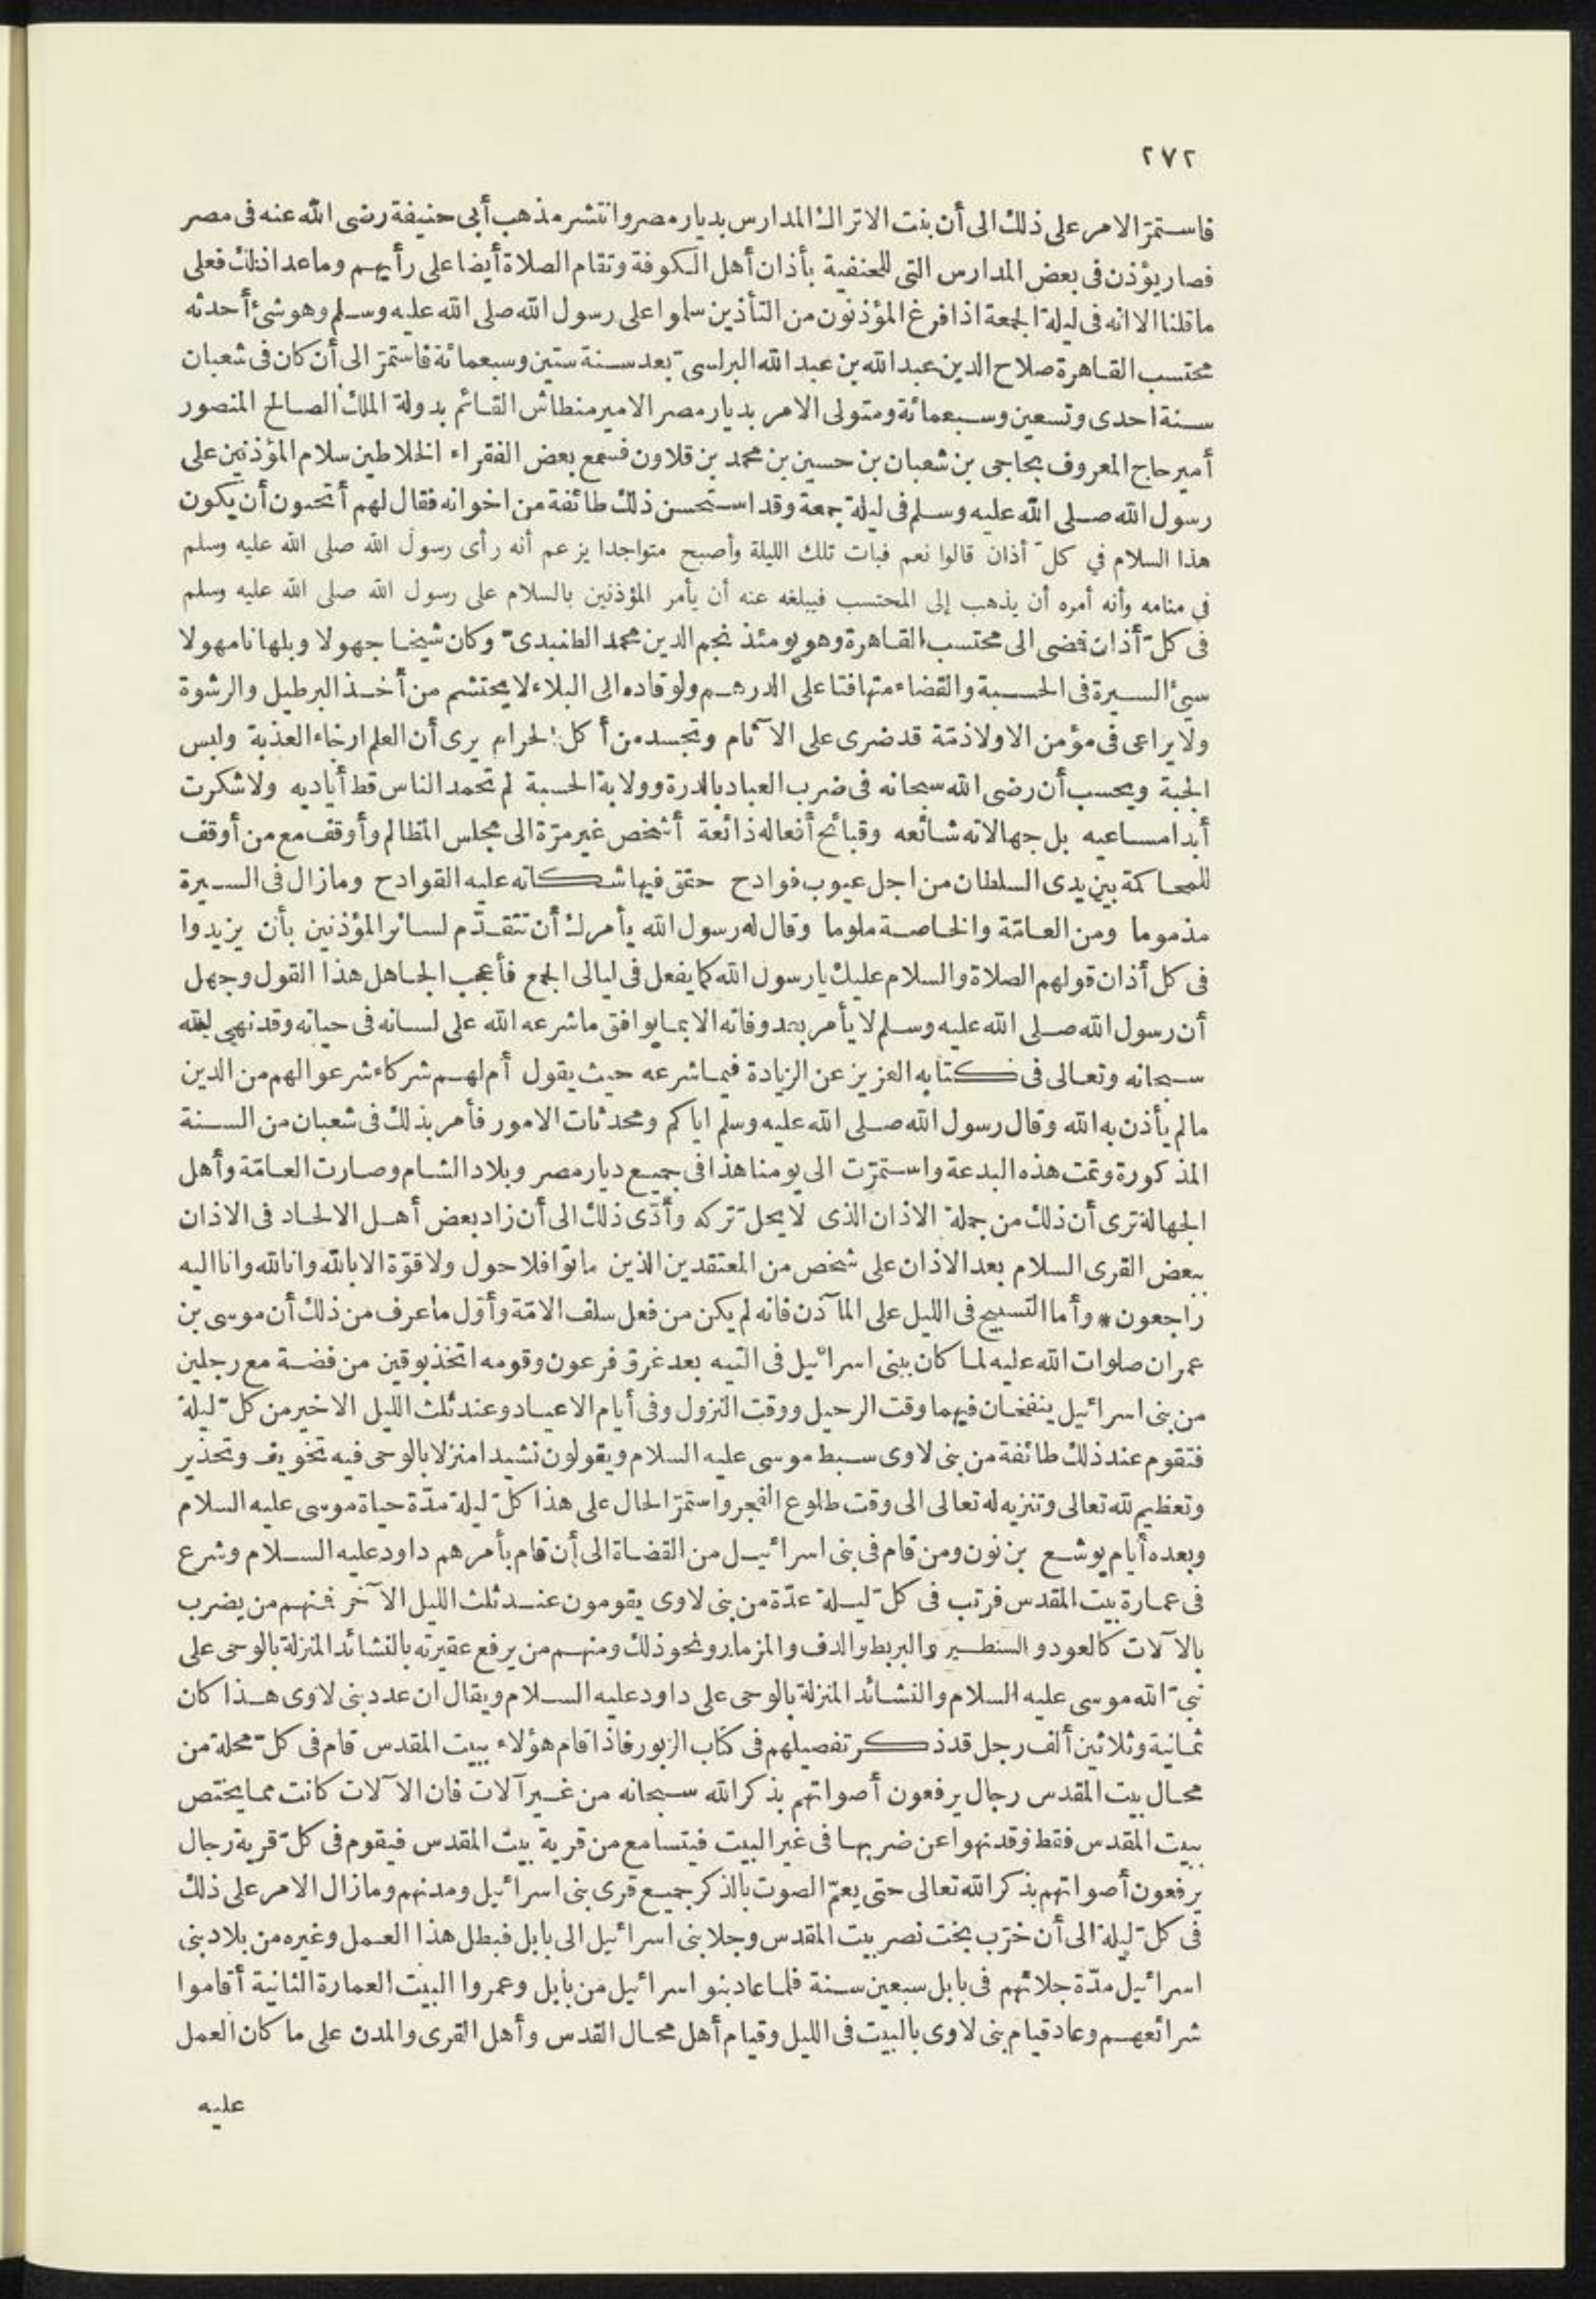 ٢٧٢
فاستمرّ الامر على ذلك الى أن بنت الاتراك المدارس بديار مصر وانتشر مذهب أبى حنيفة رضى الله عنه فى مصر
فصار يؤذن فى بعض المدارس التى للحنفية بأذان أهل الكوفة وتقام الصلاة أيضا على رأيهم وما عدا ذلك فعلى
ما قلنا الا انه فى ليلة الجمعة اذا فرغ المؤذنون من التأذين سلموا على رسول الله صلى الله عليه وسلم وهو شئ أحدثه
محتسب القاهرة صلاح الدين عبد الله بن عبد الله البرلسىّ بعد سنة ستين وسبعمائة فاستمرّ الى أن كان فى شعبان
سنة احدى وتسعين وسبعمائة ومتولى الامر بديار مصر الامير منطاش القائم بدولة الملك الصالح المنصور
أمير حاج المعروف بحاجى بن شعبان بن حسين بن محمد بن قلاون فسمع بعض الفقراء الخلاطين سلام المؤذنين على
رسول الله صلى الله عليه وسلم فى ليلة جمعة وقد استحسن ذلك طائفة من اخوانه فقال لهم أتحبون أن يكون
هذا السلام في كلّ أذان قالوا نعم فبات تلك الليلة وأصبح متواجدا يزعم أنه رأى رسول الله صلى الله عليه وسلم
في منامه وأنه أمره أن يذهب إلى المحتسب فيبلغه عنه أن يأمر المؤذنين بالسلام على رسول الله صلى الله عليه وسلم
فى كلّ أذان فضى الى محتسب القاهرة وهو يومئذ نجم الدين محمد الطنبدىّ وكان شيخا جهولا وبلهانا مهولا
سيئ السيرة فى الحسبة والقضاء متهافتا على الدرهم ولو قاده الى البلاء لا يحتشم من أخذ البرطيل والرشوة
ولا يراعى فى مؤمن الا ولا ذمّة قد ضرى على الآثام وتجسد من أكل الحرام يرى أن العلم ارخاء العذبة ولبس
الجبة ويحسب أن رضى الله سبحانه فى ضرب العباد بالدرة وولاية الحسبة لم تحمد الناس قط أياديه ولا شكرت
أبدا مساعيه بل جهالاته شائعه وقبائح أفعاله ذائعة أشخص غير مرّة الى مجلس المظالم وأوقف مع من أوقف
للمحاكمة بين يدى السلطان من اجل عيوب فوادح حقق فيها شكاته عليه القوادح وما زال فى السيرة
مذموما ومن العامّة والخاصة ملوما وقال له رسول الله يأمرك أن تتقدّم لسائر المؤذنين بأن يزيدوا
فى كل أذان قولهم الصلاة والسلام عليك يا رسول الله كما يفعل فى ليالى الجمع فأعجب الجاهل هذا القول وجهل
أن رسول الله صلى الله عليه وسلم لا يأمر بعد وفاته الا بما يوافق ما شرعه الله على لسانه فى حياته وقد نهى الله
سبحانه وتعالى فى كتابه العزيز عن الزيادة فيما شرعه حيث يقول أم لهم شركاء شرعوا لهم من الدين
ما لم يأذن به الله وقال رسول الله صلى الله عليه وسلم اياكم ومحدثات الامور فأمر بذلك فى شعبان من السنة
المذكورة وتمت هذه البدعة واستمرّت الى يومنا هذا فى جميع ديار مصر وبلاد الشام وصارت العامّة وأهل
الجهالة ترى أن ذلك من جملة الاذان الذى لا يحلّ تركه وأدّى ذلك الى أن زاد بعض أهل الالحاد فى الاذان
ببعض القرى السلام بعد الاذان على شخص من المعتقدين الذين ماتوا فلا حول ولا قوّة الا بالله وانا لله وانا اليه
راجعون * وأما التسبيح فى الليل على المآذن فانه لم يكن من فعل سلف الامّة وأوّل ما عرف من ذلك أن موسى بن
عمران صلوات الله عليه لما كان ببنى اسرائيل فى التيه بعد غرق فرعون وقومه اتخذ بوقين من فضة مع رجلين
من بنى اسرائيل ينفخان فيهما وقت الرحيل ووقت النزول وفى أيام الاعياد وعند ثلث الليل الاخير من كلّ ليلة
فتقوم عند ذلك طائفة من بنى لاوى سبط موسى عليه السلام ويقولون نشيدا منزلا بالوحى فيه تخويف وتحذير
وتعظيم لله تعالى وتنزيه له تعالى الى وقت طلوع الفجر واستمرّ الحال على هذا كلّ ليلة مدّة حياة موسى عليه السلام
وبعده أيام يوشع بن نون ومن قام فى بنى اسرائيل من القضاة الى أن قام بأمرهم داود عليه السلام وشرع
فى عمارة بيت المقدس فرتب فى كلّ ليلة عدّة من بنى لاوى يقومون عند ثلث الليل الآخر فمنهم من يضرب
بالآلات كالعود والسنطير والبربط والدف والمزمار ونحو ذلك ومنهم من يرفع عقيرته بالنشائد المنزلة بالوحى على
نبىّ الله موسى عليه السلام والنشائد المنزلة بالوحى على داود عليه السلام ويقال ان عدد بنى لاوى هذا كان
ثمانية وثلاثين ألف رجل قد ذكر تفصيلهم فى كتاب الزبور فاذا قام هؤلاء ببيت المقدس قام فى كلّ محلة من
محال بيت المقدس رجال يرفعون أصواتهم بذكر الله سبحانه من غير آلات فان الآلات كانت مما يختص
ببيت المقدس فقط وقد نهوا عن ضربها فى غير البيت فيتسامع من قرية بيت المقدس فيقوم فى كلّ قرية رجال
يرفعون أصواتهم بذكر الله تعالى حتى يعمّ الصوت بالذكر جميع قرى بنى اسرائيل ومدنهم وما زال الامر على ذلك
فى كلّ ليلة الى أن خرّب بخت نصر بيت المقدس وجلا بنى اسرائيل الى بابل فبطل هذا العمل وغيره من بلاد بنى
اسرائيل مدّة جلائهم فى بابل سبعين سنة فلما عاد بنو اسرائيل من بابل وعمروا البيت العمارة الثانية أقاموا
شرائعهم وعاد قيام بنى لاوى بالبيت فى الليل وقيام أهل محال القدس وأهل القرى والمدن على ما كان العمل
عليه